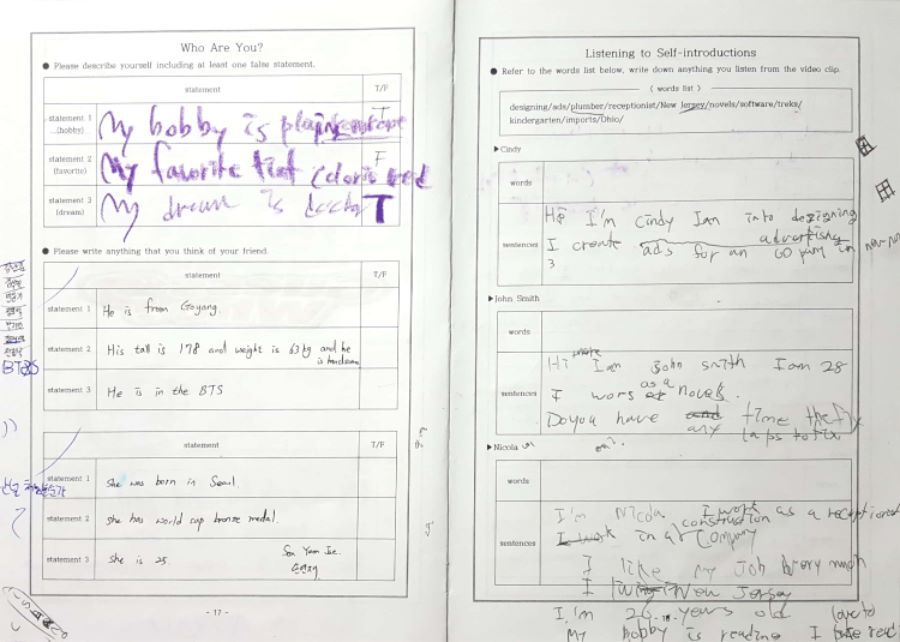 Who Are You?
● Please describe yourself including at least one false statement.
statement
T/F
statement 1
(hobby)
My hobby is
T
statement 2
(favorite)
My favorite color is red
F
statement 3
(dream)
My dream is
T
● Please write anything that you think of your friend.
statement
T/F
statement 1
He is from Goyang.
statement 2
His tall is 178 and weight is 63kg and he
is handsome
statement 3
He is in the BTS
BTS
statement
T/F
statement 1
She was born in Seoul.
statement 2
she has world cup bronze medal.
statement 3
she is 25.
Son Yeon Jae.
손연재
- 17 -
Listening to Self-introductions
● Refer to the words list below, write down anything you listen from the video clip.
( words list )
designing/ads/plumber/receptionist/New Jersey/novels/software/treks/
kindergarten/imports/Ohio/
▶Cindy
words
sentences
I'm Cindy Iam into designing
advertising
I create ads for an in
3
▶John Smith
words
sentences
Hi Iam John smith Iam 28
as a
I novels.
Do you have and time the
any
▶Nicola
words
sentences
I'm Nicola I work as a
construction
I work in a Company
I like my Job very much
I New Jersey
I'm 26 years old
- 18 -
My hobby is reading I